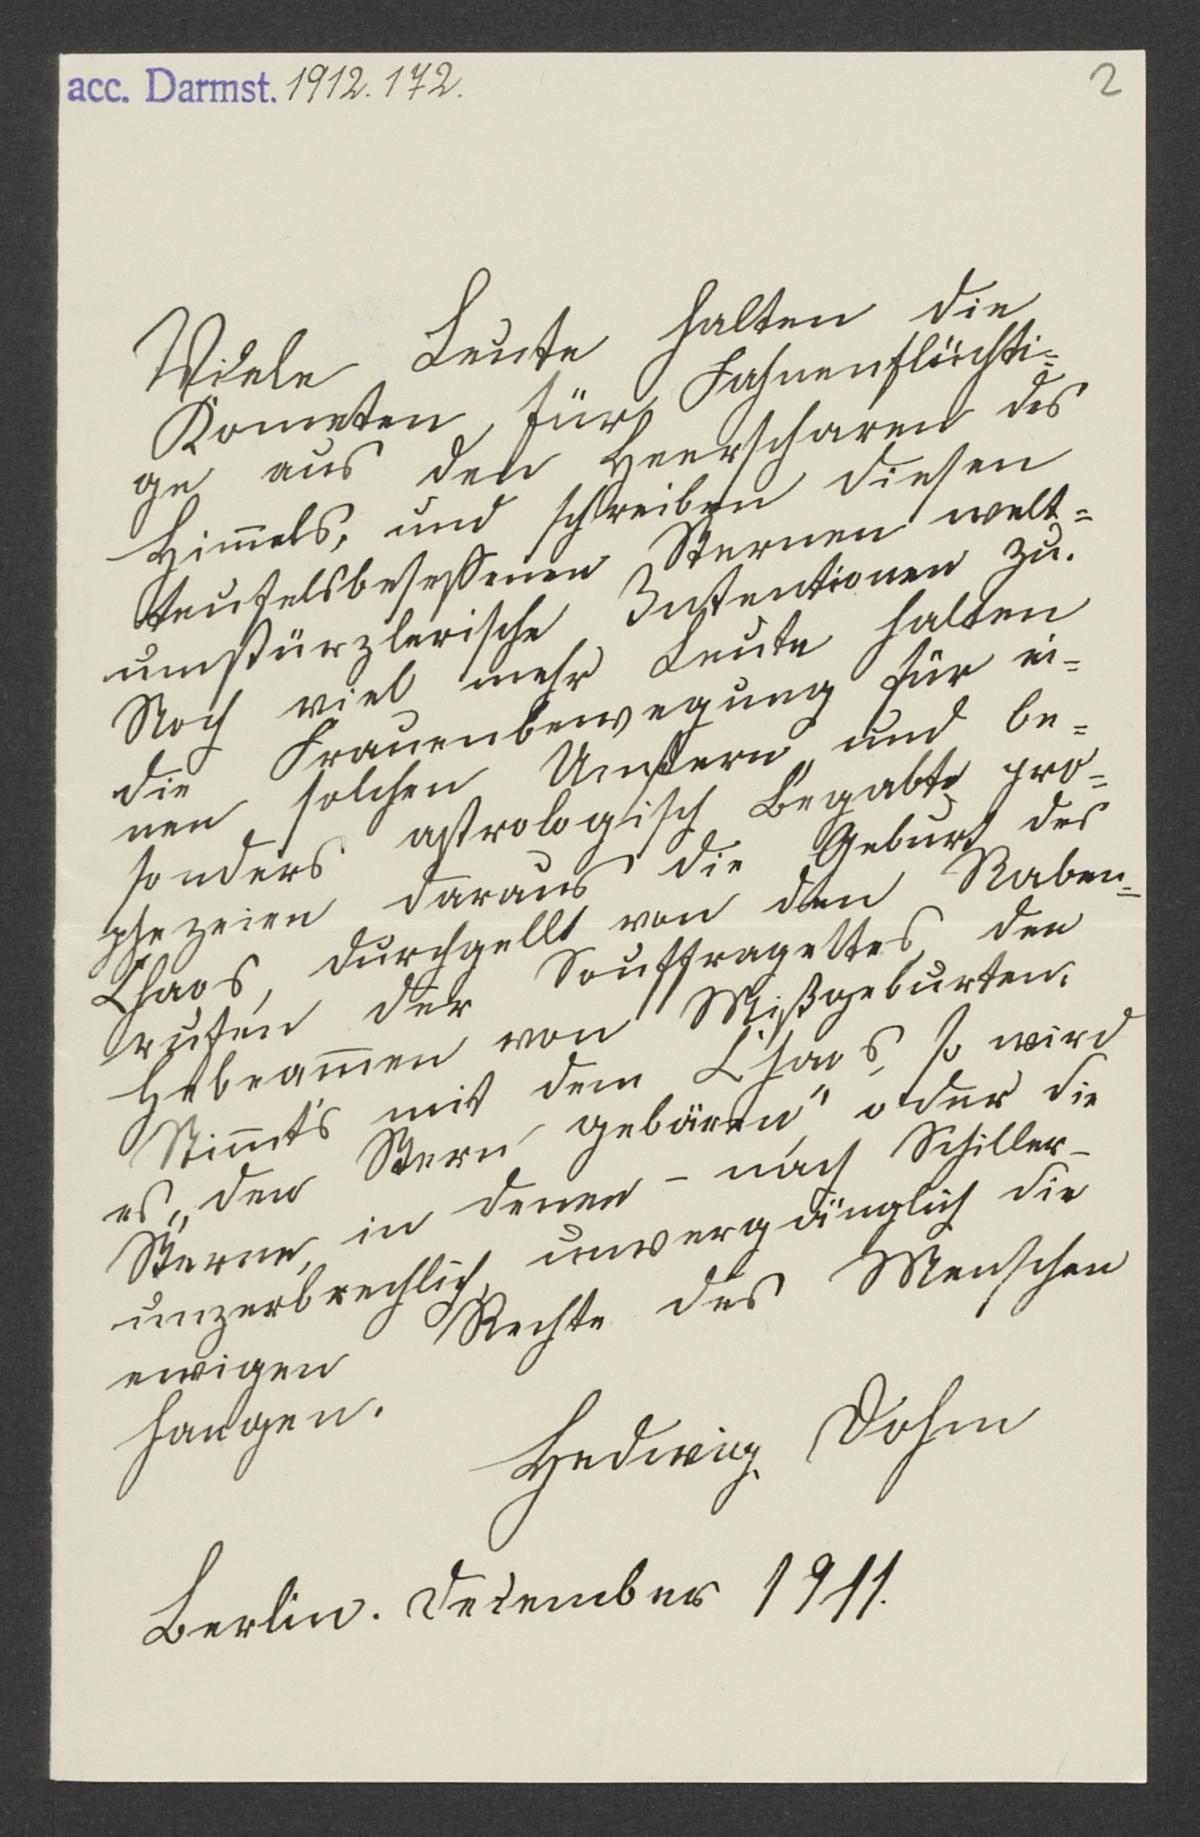 acc. Darmst. 1912. 172.
2
Viele Leute halten die
Kometen für Fahnenflüchti=
ge aus den Heerscharen des
Himmels, und schreiben diesen
teufelsbesessenen Sternen welt=
umstürzlerische Intentionen zu.
Noch viel mehr Leute halten
die Frauenbewegung für ei=
nen solchen Unstern, und be=
sonders astrologisch Begabte pro=
phezeien daraus die Geburt des
Chaos, durchgellt von den Raben=
rufen der Souffragettes, den
Hebeam̅en von Mißgeburten.
Stim̅t's mit dem Chaos, so wird
es „den Stern gebären", oder die
Sterne, in denen – nach Schiller –
unzerbrechlich, unvergänglich die
ewigen Rechte des Menschen
hangen.
Hedwig Dohm
Berlin. December 1911.